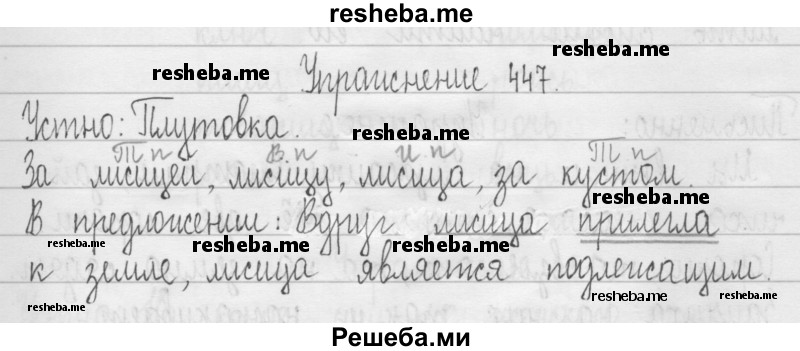 resheba.me
resheba.me
resheba.me Упражнение 447.
Устно: Плутовка. resheba.me
Т п В. п И. п Т п
За лисицей, лисицу, лисица, за кустом.
В предложении: Вдруг лисица прилегла
resheba.me resheba.me resheba.me
к земле, лисица является подлежащим.
resheba.me resheba.me
Решеба.ми